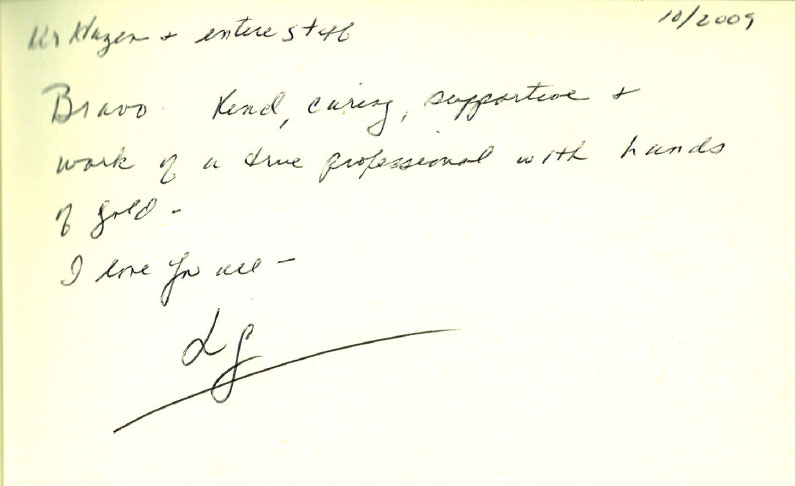 Dr Hazen + entire staff 10/2009
Bravo. Kind, caring, supportive +
work of a true professional with hands
of gold -
I love you all -
LG